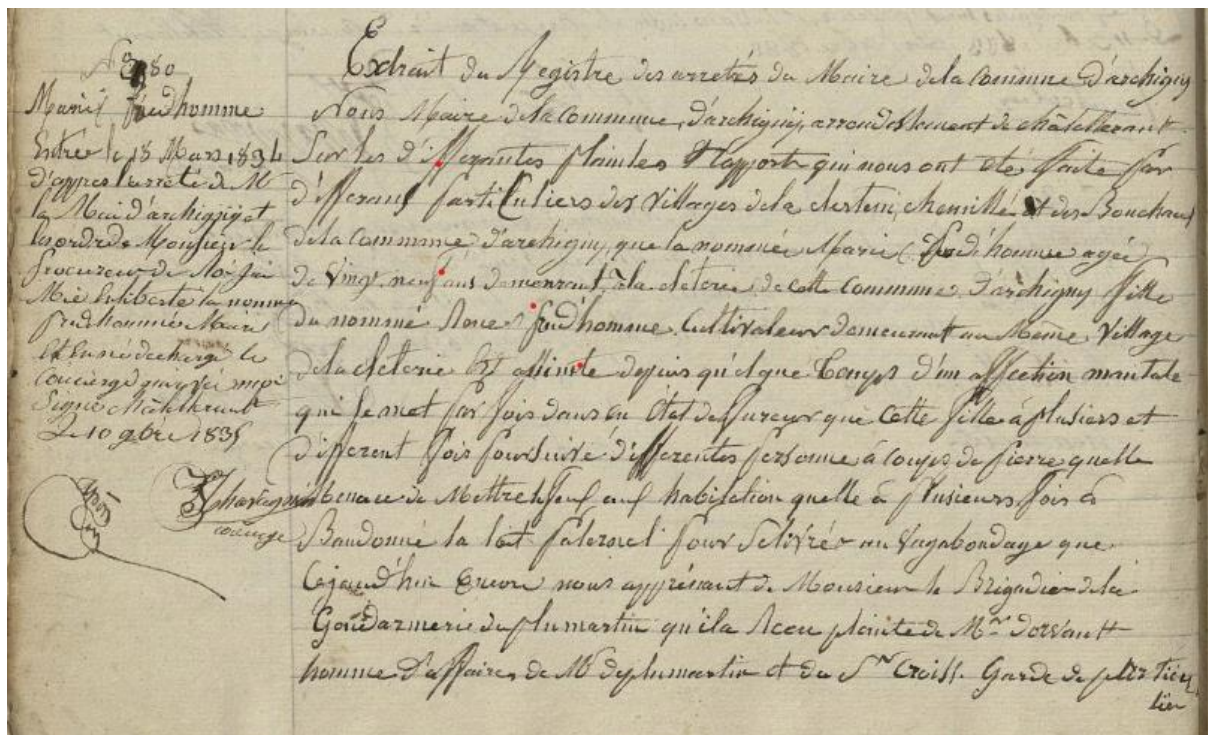 N° 80
Marie prudhomme
Entrée le 18 Mars 1834
d'apres l'arreté de Mr
le Mair d'archigny et
les ordre de Monsieur le
procureur du Roi j'ai
Mie En liberté la nommé
prudhomme Marie
Et En sui décharge le
Concierge
Signé Châtellerault
Le 10 9bre 1835
concierge
Extrait du Registre des arretés du Maire de la Commune d'archigny
Nous Maire de la Commune d'archigny, arrondissement de châtellerault
Sur les differantes plaintes & rapport qui nous ont été faite par
differans partiCuliers des Villages de la cleterie, chemillé et des Bouchaux
de la Commune d'archigny, que la nommée Marie prud'homme agée
de Vingt neuf ans demeurant à la cleterie de cette Commune d'archigny fille
du nommé Rene prud'homme Cultivateur demeurant au Même Village
de la cleterie Est attinte depuis quelque Temps d'un affection mantale
qui se met par fois dans un Etat de fureur que Cette fille à plusiers et
different fois poursuivré differentes personne à coups de pierre quelle
Menace de Mettre le feu aux habitation quelle à plusieurs fois a
Baudonné la toit paternel pour se livré au Vagabondage que
Cejourd'hui Encore nous apprenant de Monsieur le Brigadier de la
Gendarmerie de plumartin qu'il a Recu plainte de Mr dorvault
homme d'affaires de Mr de plumartin et du Sr Croiss. Garde de partieu
lier